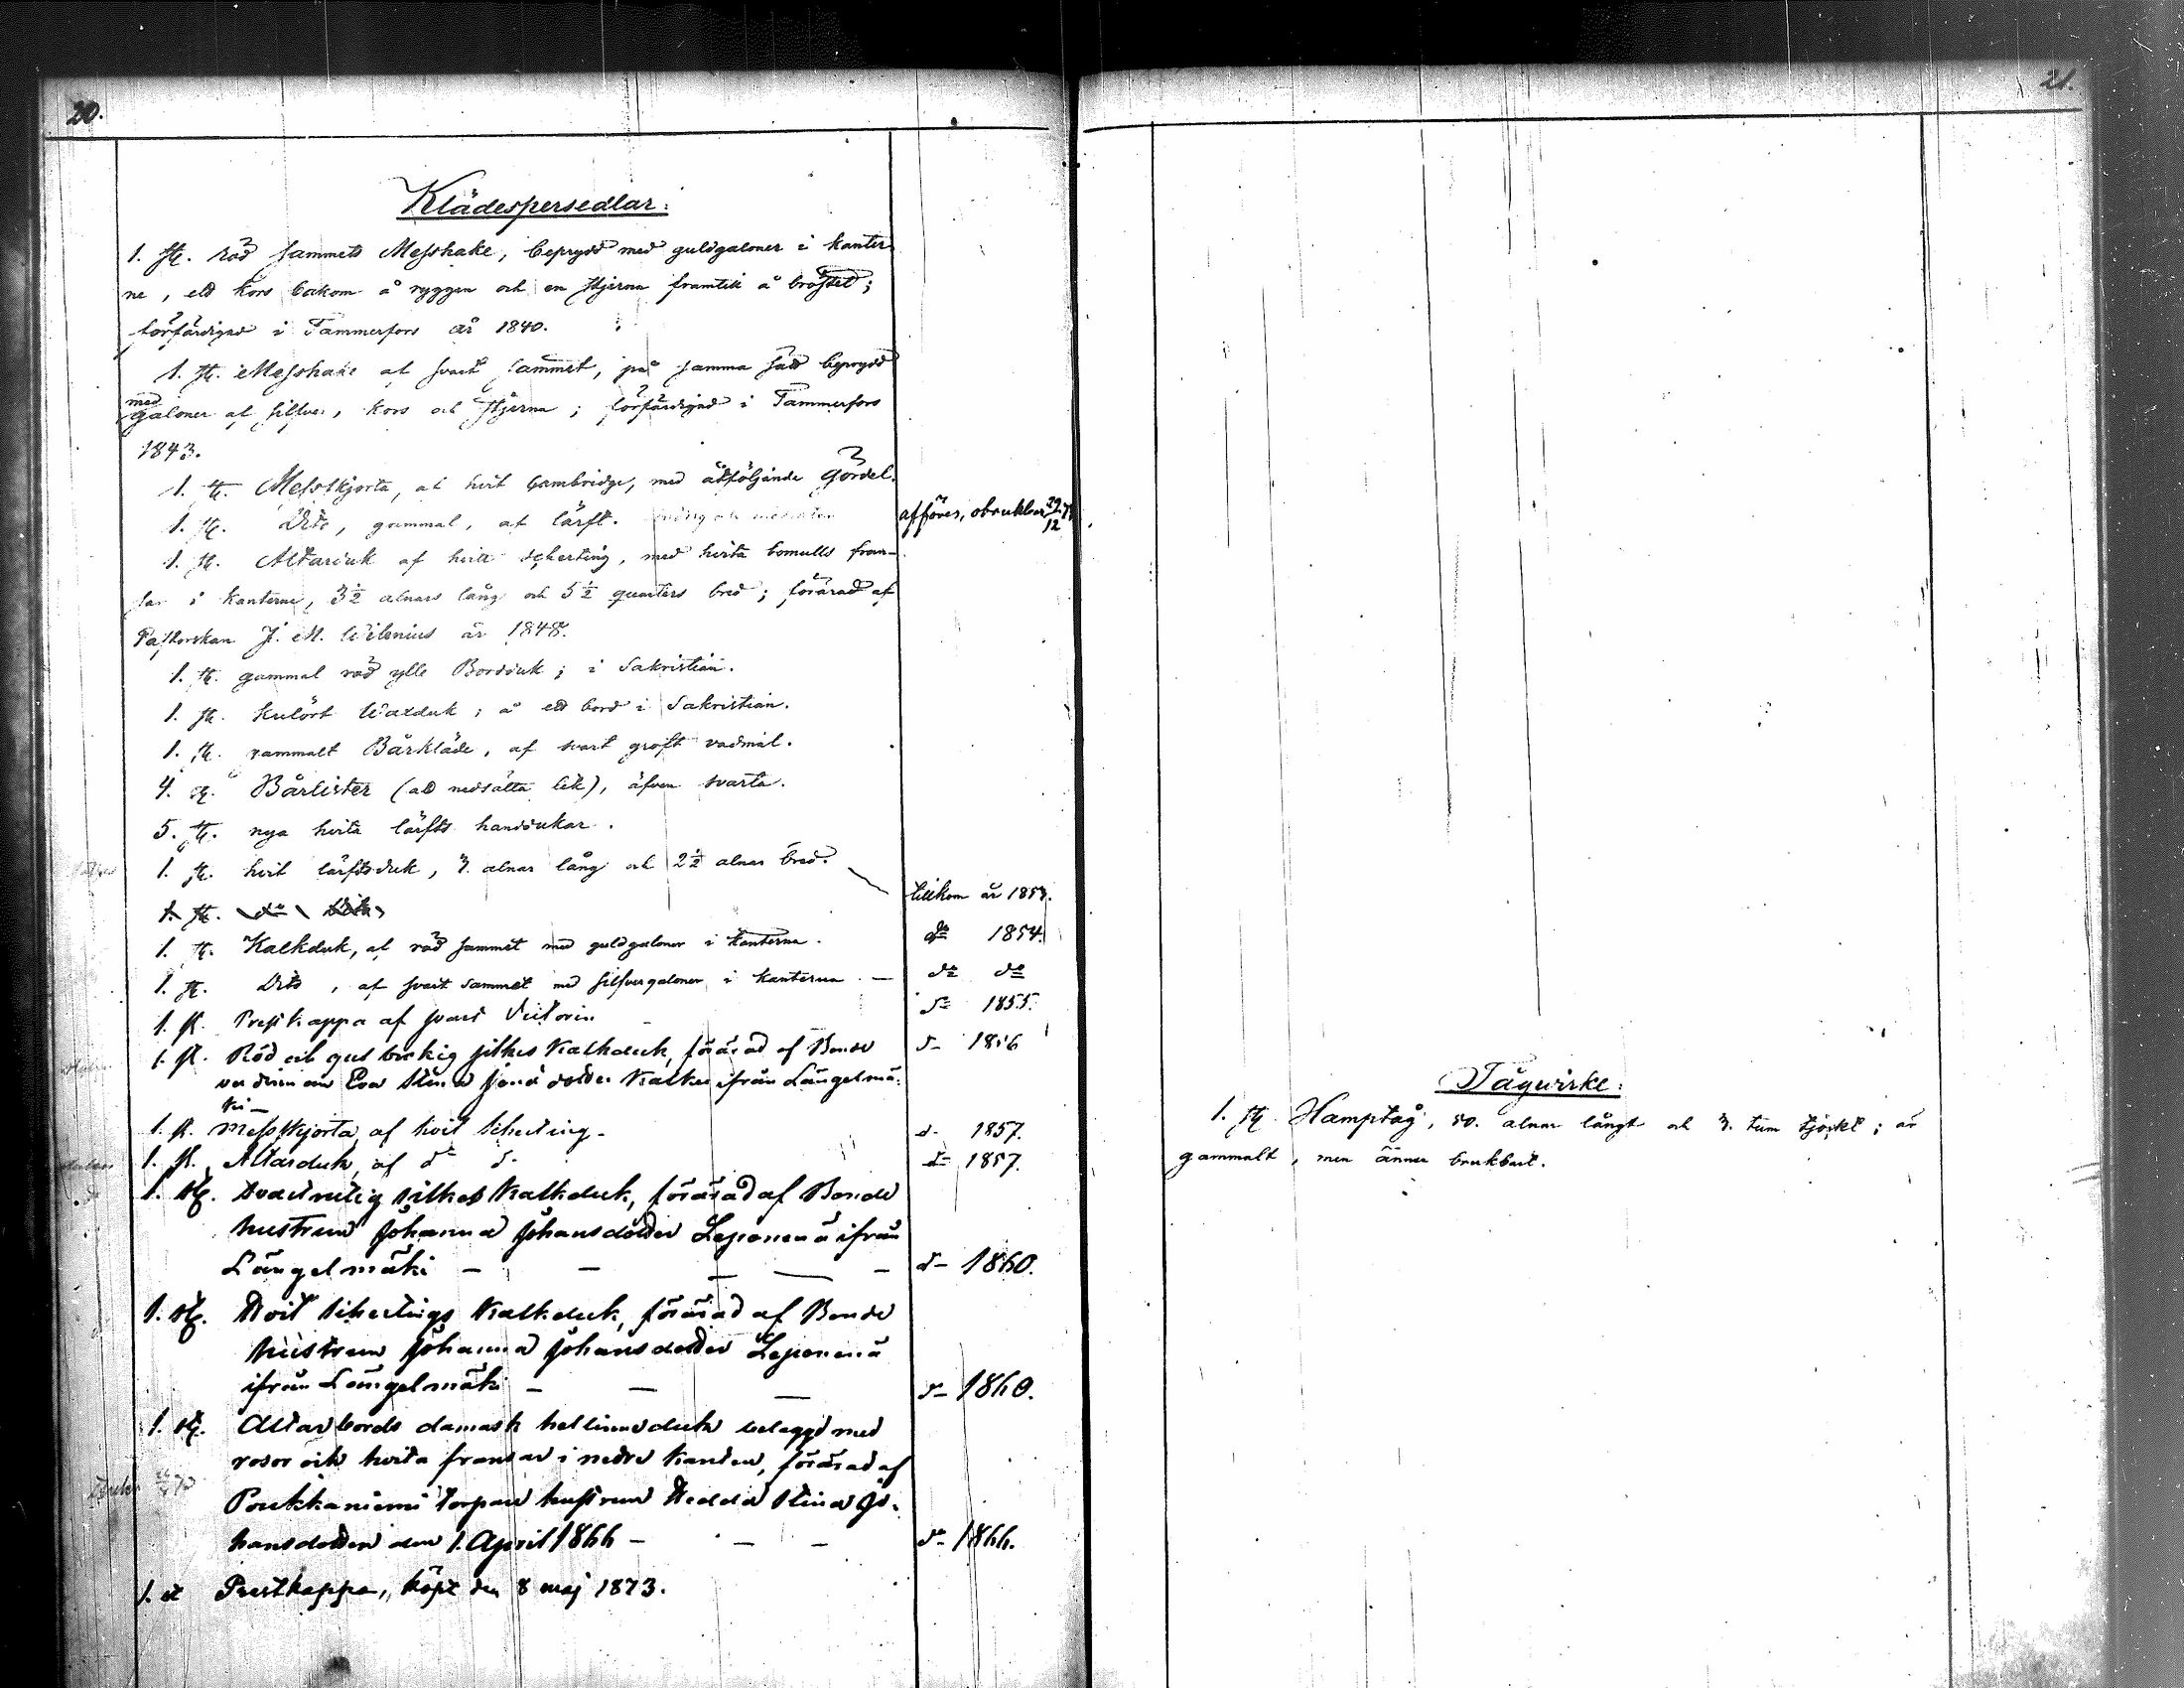 20.
Klädespersedlar:
1. st. röd sammets Messhake, beprydd med guldgaloner i kanter
ne, ett kors bakom å ryggen och en stjerna framtill å bröstet;
förfärdigad i Tammerfors år 1840.
1. st. Messhake af svart sammet, på samma sätt beprydd
med
galoner af silfver, kors och stjerna; förfärdigad i Tammerfors
1843.
1. st. Messskjorta, af hvit Cambridge, med åtföljande gördel.
1. st. Dito, gammal, af lärft. afföres, obrukbar 29/12
1. st. Altarduk af hvit scherting, med hvita bomulls fran-
sar i kanterne, 3½ alnars lång och 5½ quarters bred; förärad af
Pastorskan J. M. Wilenius år 1848.
1. st. gammal röd ylle Bordduk; i Sakristian.
1. st. kulört Waxduk; å ett bord i Sakristian.
1. st. gammalt Bårkläde, af svart groft vadmal.
4. st. Bårlister (att nedsätta lik), äfven svarta.
5. st. nya hvita lärfts handdukar.
1. st. hvit lärftsduk, 3. alnar lång och 2½ alnar bred. tillkom år 1853.
1. st. do
1. st. Kalkduk, af röd sammet med guldgaloner i kanterna. do 1854.
1. st. Dito, af svart sammet med silfvergaloner i kanterna — do do
1. st. Prestkappa af svart do 1855.
1. st. Röd och gul silkes Kalkduk, förärad af Bonde do 1856
Eva Stina ifrån Längelmä-
ki —
1. st. Messskjorta af hvit scherting - d. 1857.
1. st. Altarduk af do do d- 1857.
1. st. silkes Kalkduk, förärad af Bonde
hustrun Johanna Johansdotter Leponenä ifrån
Längelmäki — — — — d- 1860.
1. st. Hvit schertings Kalkduk, förärad af Bonde
hustrun Johanna Johansdotter Leponenä
ifrån Längelmäki — — — d- 1860.
1. st. Altarbords damask hellinneduk belaggd med
rosor och hvita fransar i nedre kanten, förärad af
Poukkaniemi torpare hustrun Hedda Stina Jo-
hansdotter den 1. April 1866 — — — do 1866.
1. st Prestkappa, köpt den 8 maj 1873.
21.
Tågvirke:
1. st. Hamptåg, 50. alnar långt och 3. tum tjockt; är
gammalt, men ännu brukbart.